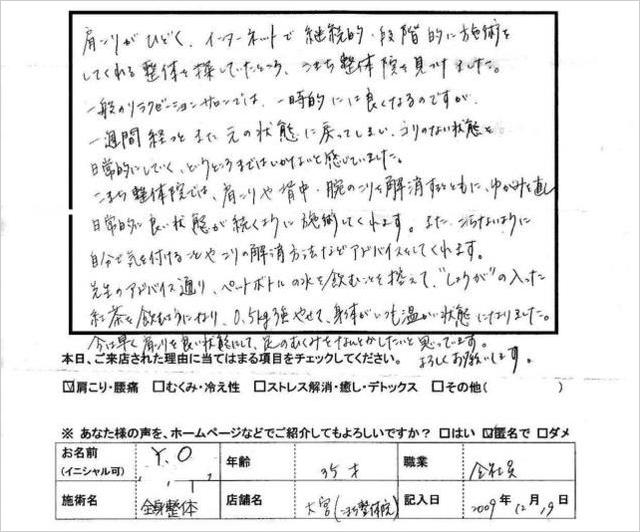 肩こりがひどく、インターネットで継続的・段階的に施術を
してくれる整体を探していたところ、こまち整体院を見つけました。
一般のリラクゼーションサロンでは、一時的には良くなるのですが、
一週間経つとまた元の状態に戻ってしまい、こりのない状態を
日常的にしていく、というところまではいかないと感じていました。
こまち整体院では、肩こりや背中・腕のこりを解消するとともに、ゆがみを直し
日常的に良い状態が続くように施術してくれます。また、こらないように
自分で気を付けることやこりの解消方法などアドバイスをしてくれます。
先生のアドバイス通り、ペットボトルの水を飲むことを控えて、"しょうが"の入った
紅茶を飲むようになり、0.5kg強やせて、身体がいつも温かい状態になりました。
今は早く肩こりを良い状態にして、足のむくみをなんとかしたいと思っています。
よろしくお願いします。
本日、ご来店された理由に当てはまる項目をチェックしてください。
☑肩こり・腰痛 □むくみ・冷え性 □ストレス解消・癒し・デトックス □その他( )
※ あなた様の声を、ホームページなどでご紹介してもよろしいですか? □はい ☑匿名で □ダメ
お名前 (イニシャル可) Y.O 年齢 35才 職業 会社員
施術名 全身整体 店舗名 大宮(こまち整体院) 記入日 2009年12月19日